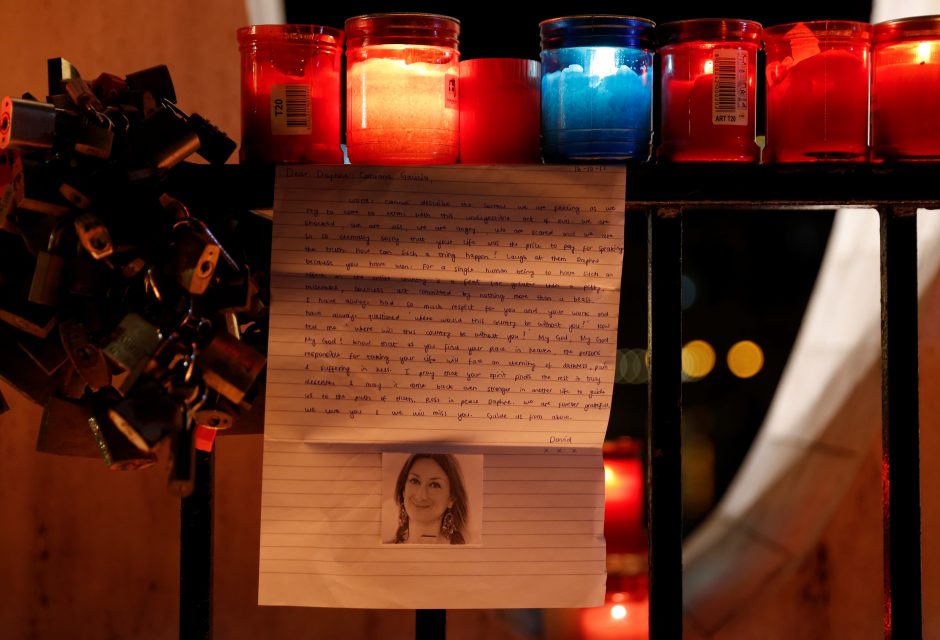 T20
ART T20
16-10-17
Dear Daphne Caruana Galizia,
Words cannot describe the sorrow we are feeling as we
try to come to terms with this undigestible act of evil. We are
shocked, we are sad, we are angry, we are scared and we are
so so eternally sorry that your life was the price to pay for speaking
the truth. How can such a thing happen? Laugh at them Daphne
because you have won. For a single human being to have such an
effect on the entire is a feat far greater than a petty,
miserable, act committed by nothing more than a beast.
I have always had so much respect for you and your work and
have always questioned "where would this country be without you?" Now
tell me "where will this country be without you?" My God, My God
My God! I know that as you find your place in heaven the persons
responsible for taking your life will face an eternity of darkness, pain
& suffering in hell. I pray that your spirit finds the rest it truly
deserves & may it come back even stronger in another life to guide
us to the path of truth. Rest in peace Daphne. We are forever grateful,
we love you & we will miss you. Guide us from above.
David
x x x